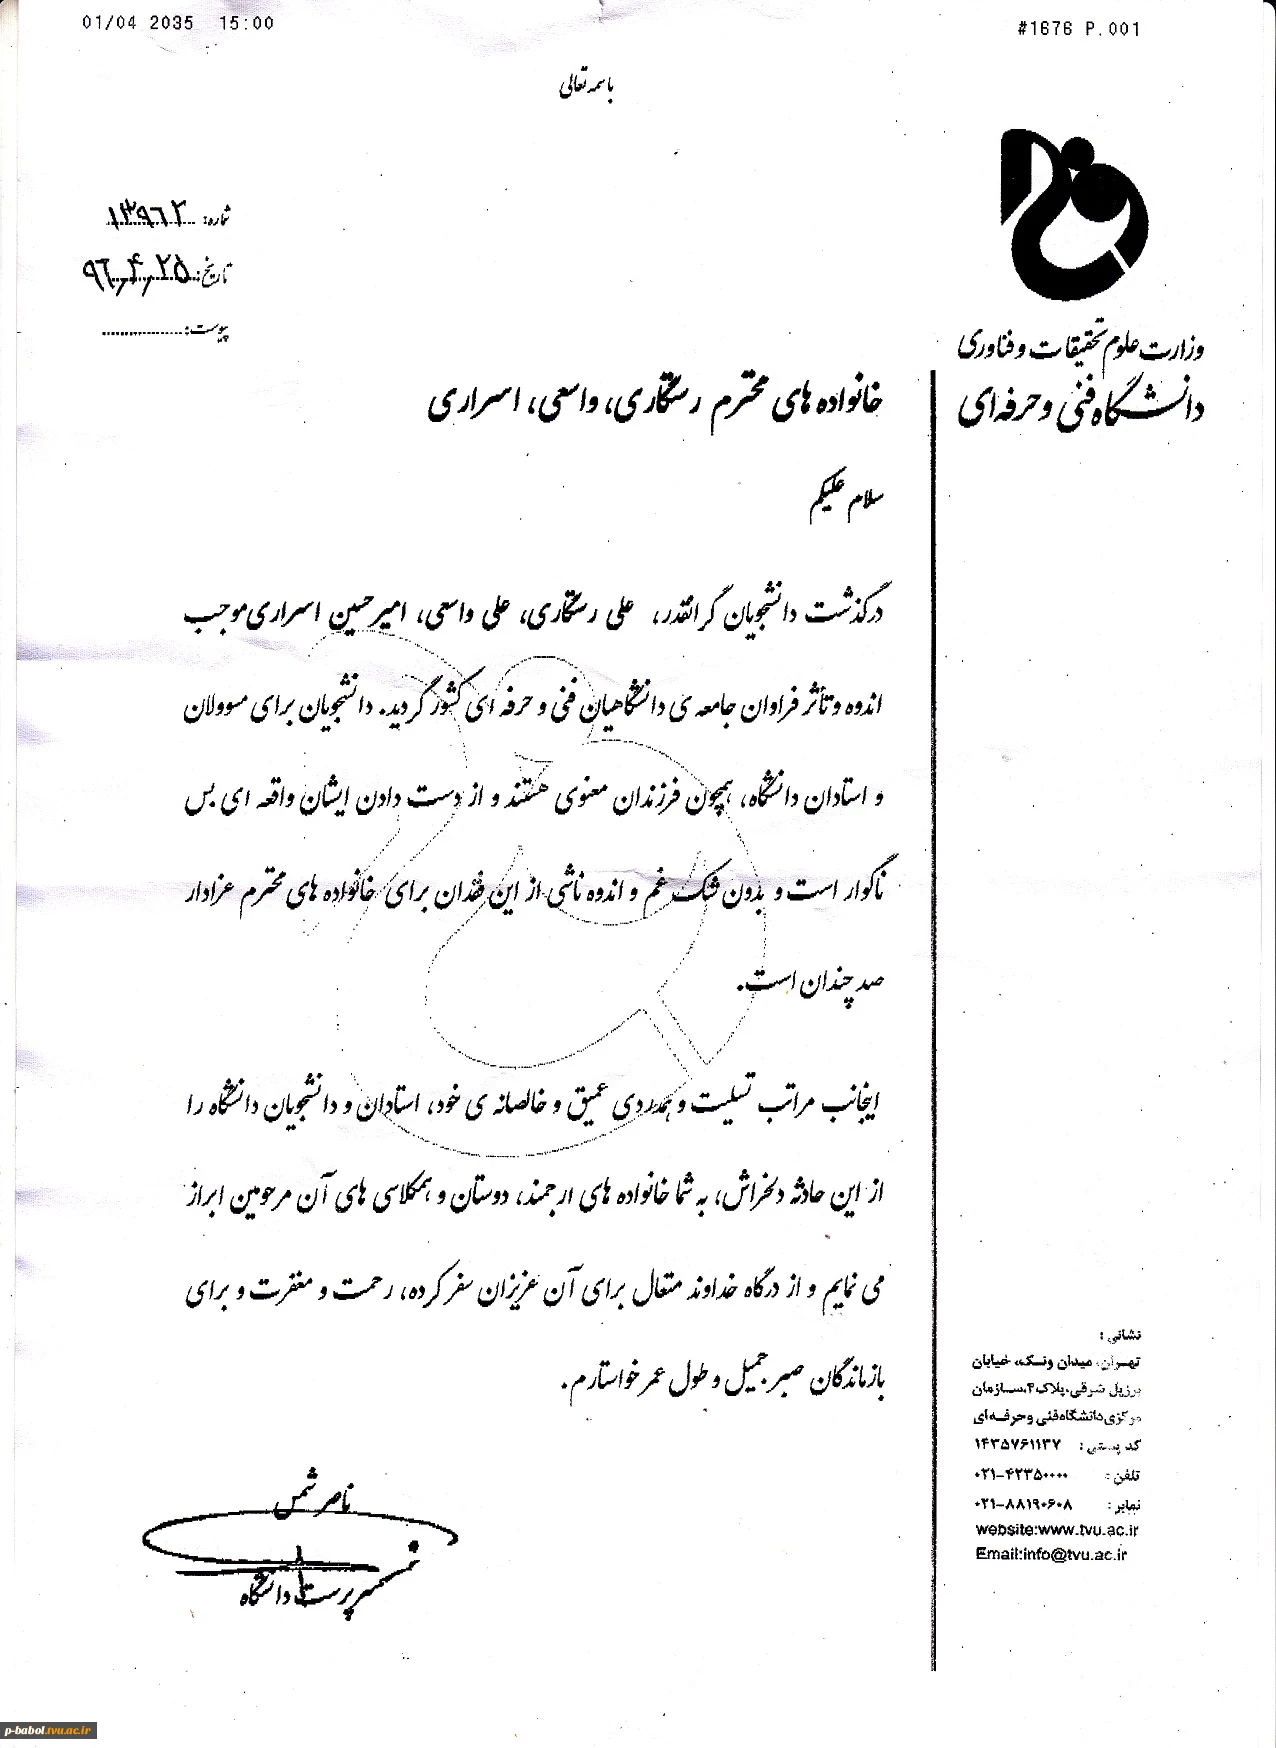 01/04 2035 15:00
#1676 P.001
باسمه تعالی
شماره: ۱۳۹۶۲
تاریخ: ۹۶،۴،۲۵
پیوست:
وزارت علوم تحقیقات و فناوری
دانشگاه فنی و حرفه ای
خانواده های محترم رستگاری، واسعی، اسراری
سلام علیکم
درگذشت دانشجویان گرانقدر، علی رستگاری، علی واسعی، امیرحسین اسراری موجب
اندوه و تأثر فراوان جامعه ی دانشگاهیان فنی و حرفه ای کشور گردید. دانشجویان برای مسوولان
و استادان دانشگاه، همچون فرزندان معنوی هستند و از دست دادن ایشان واقعه ای بس
ناگوار است و بدون شک غم و اندوه ناشی از این فقدان برای خانواده های محترم عزادار
صد چندان است.
اینجانب مراتب تسلیت و همدردی عمیق و خالصانه ی خود، استادان و دانشجویان دانشگاه را
از این حادثه دلخراش، به شما خانواده های ارجمند، دوستان و همکلاسی های آن مرحومین ابراز
می نمایم و از درگاه خداوند متعال برای آن عزیزان سفر کرده، رحمت و مغفرت و برای
بازماندگان صبر جمیل و طول عمر خواستارم.
ناصر شمس
سرپرست دانشگاه
نشانی :
تهران، میدان ونک، خیابان
برزیل شرقی، پلاک ۴، سازمان
مرکزی دانشگاه فنی و حرفه ای
کد پستی : ۱۴۳۵۷۶۱۱۳۷
تلفن : ۰۲۱-۴۲۳۵۰۰۰۰
نمابر : ۰۲۱-۸۸۱۹۰۶۰۸
website:www.tvu.ac.ir
Email:info@tvu.ac.ir
p-babol.tvu.ac.ir